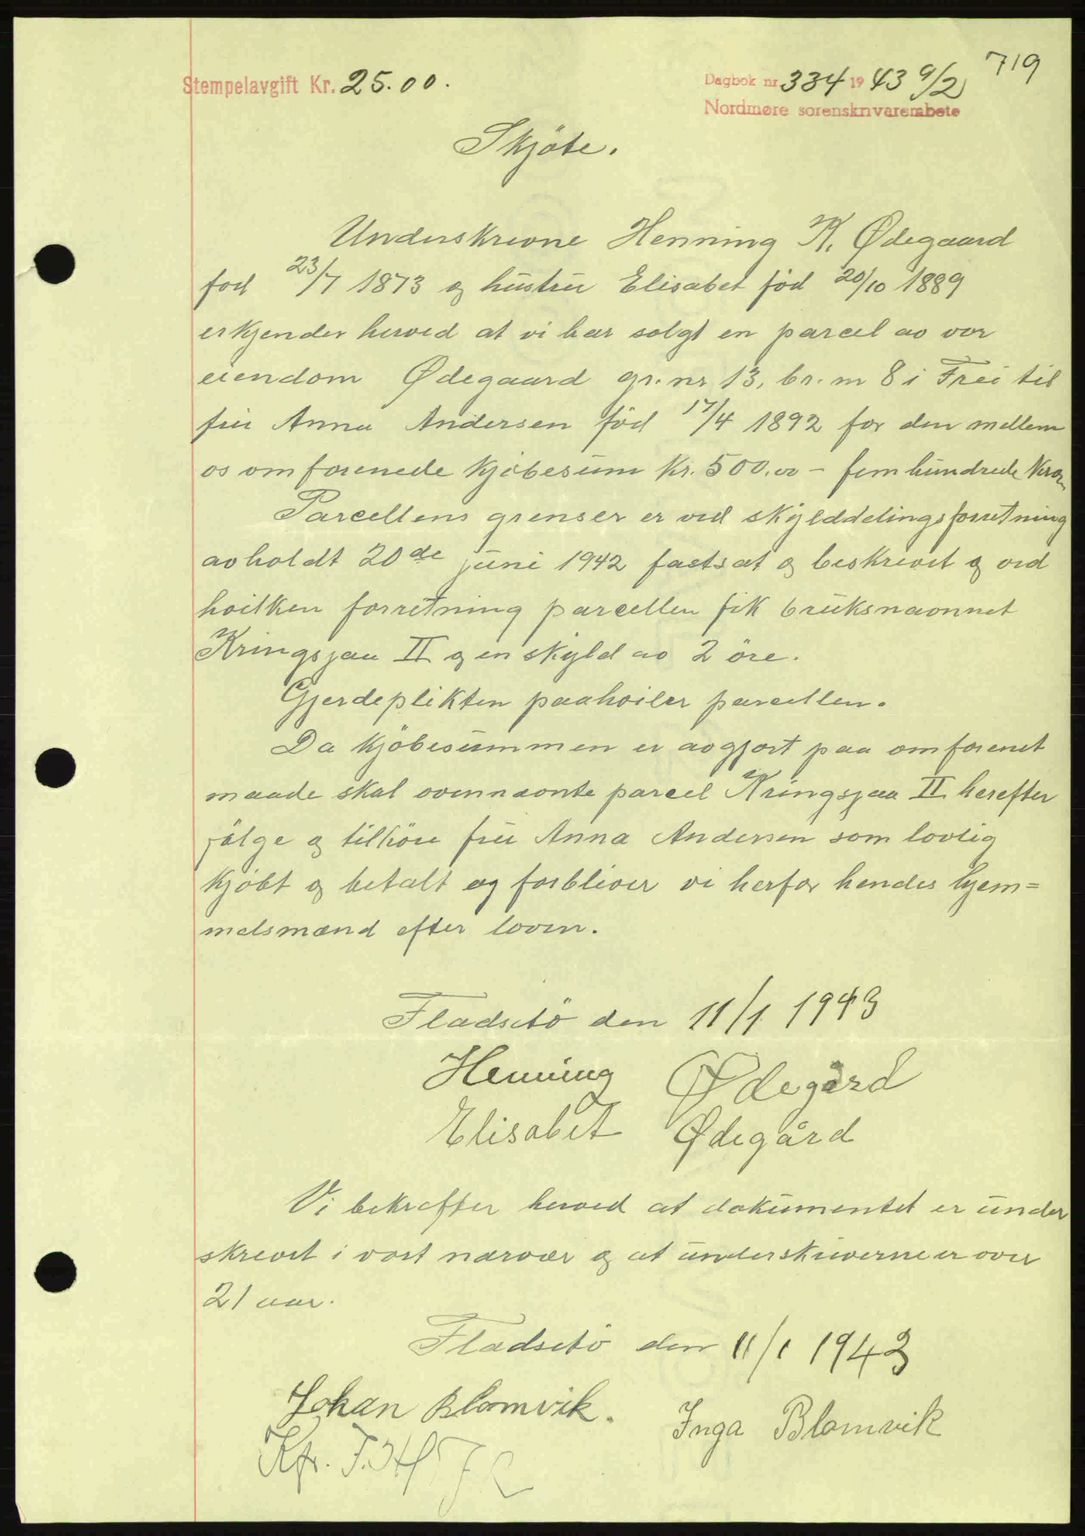 719
Stempelavgift Kr. 25.00.
Dagbok nr 334 1943 9/2
Nordmøre sorenskriverembete
Skjöte.
Underskrevne Henning K. Ødegaard
föd 23/7 1873 og hustru Elisabet föd 20/10 1889
erkjender herved at vi har solgt en parcel av vor
eiendom Ødegaard gr. nr. 13, br. nr 8 i Frei til
fru Anna Andersen föd 17/4 1892 for den mellem
os omforenede kjöbesum kr. 500.00 – fem hundrede kron
Parcellens grenser er ved skylddelingsforretning
avholdt 20de juni 1942 fastsat og beskrevet og ved
hvilken forretning parcellen fik bruksnavnet
Kringsjaa II og en skyld av 2 öre.
Gjerdeplikten paahviler parcellen.
Da kjöbesummen er avgjort paa omforenet
maade skal ovennævnte parcel Kringsjaa II herefter
fölge og tilhöre fru Anna Andersen som lovlig
kjöbt og betalt og forbliver vi herfor hendes hjem=
melsmænd efter loven.
Fladsetö den 11/1 1943
Henning Ødegård
Elisabet Ødegård
Vi bekrefter herved at dokumentet er under
skrevet i vort nærvær og at underskriverne er over
21 aar.
Fladsetö den 11/1 1943
Johan Blomvik. Inga Blomvik
Kfr.